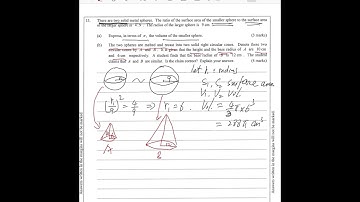 11. There are two solid metal spheres. The ratio of the surface area of the smaller sphere to the surface area
of the larger sphere is 4 : 9. The radius of the larger sphere is 9 cm.
(a) Express, in terms of π, the volume of the smaller sphere. (3 marks)
(b) The two spheres are melted and recast into two solid right circular cones. Denote these two
circular cones by A and B. It is given that the height and the base radius of A are 10 cm
and 6 cm respectively. A student finds that the base radius of B is 12 cm. The student
claims that A and B are similar. Is the claim correct? Explain your answer. (5 marks)
let r = radius
S₁, S₂ surface area
V₁, V₂ = Vol
(r₁/9)² = 4/9 ⇒ r₁ = 6.
Vol. = 4/3 π × 6³
= 288π cm³
A
B
Answers written in the margins will not be marked.
Answers written in the margins will not be marked.